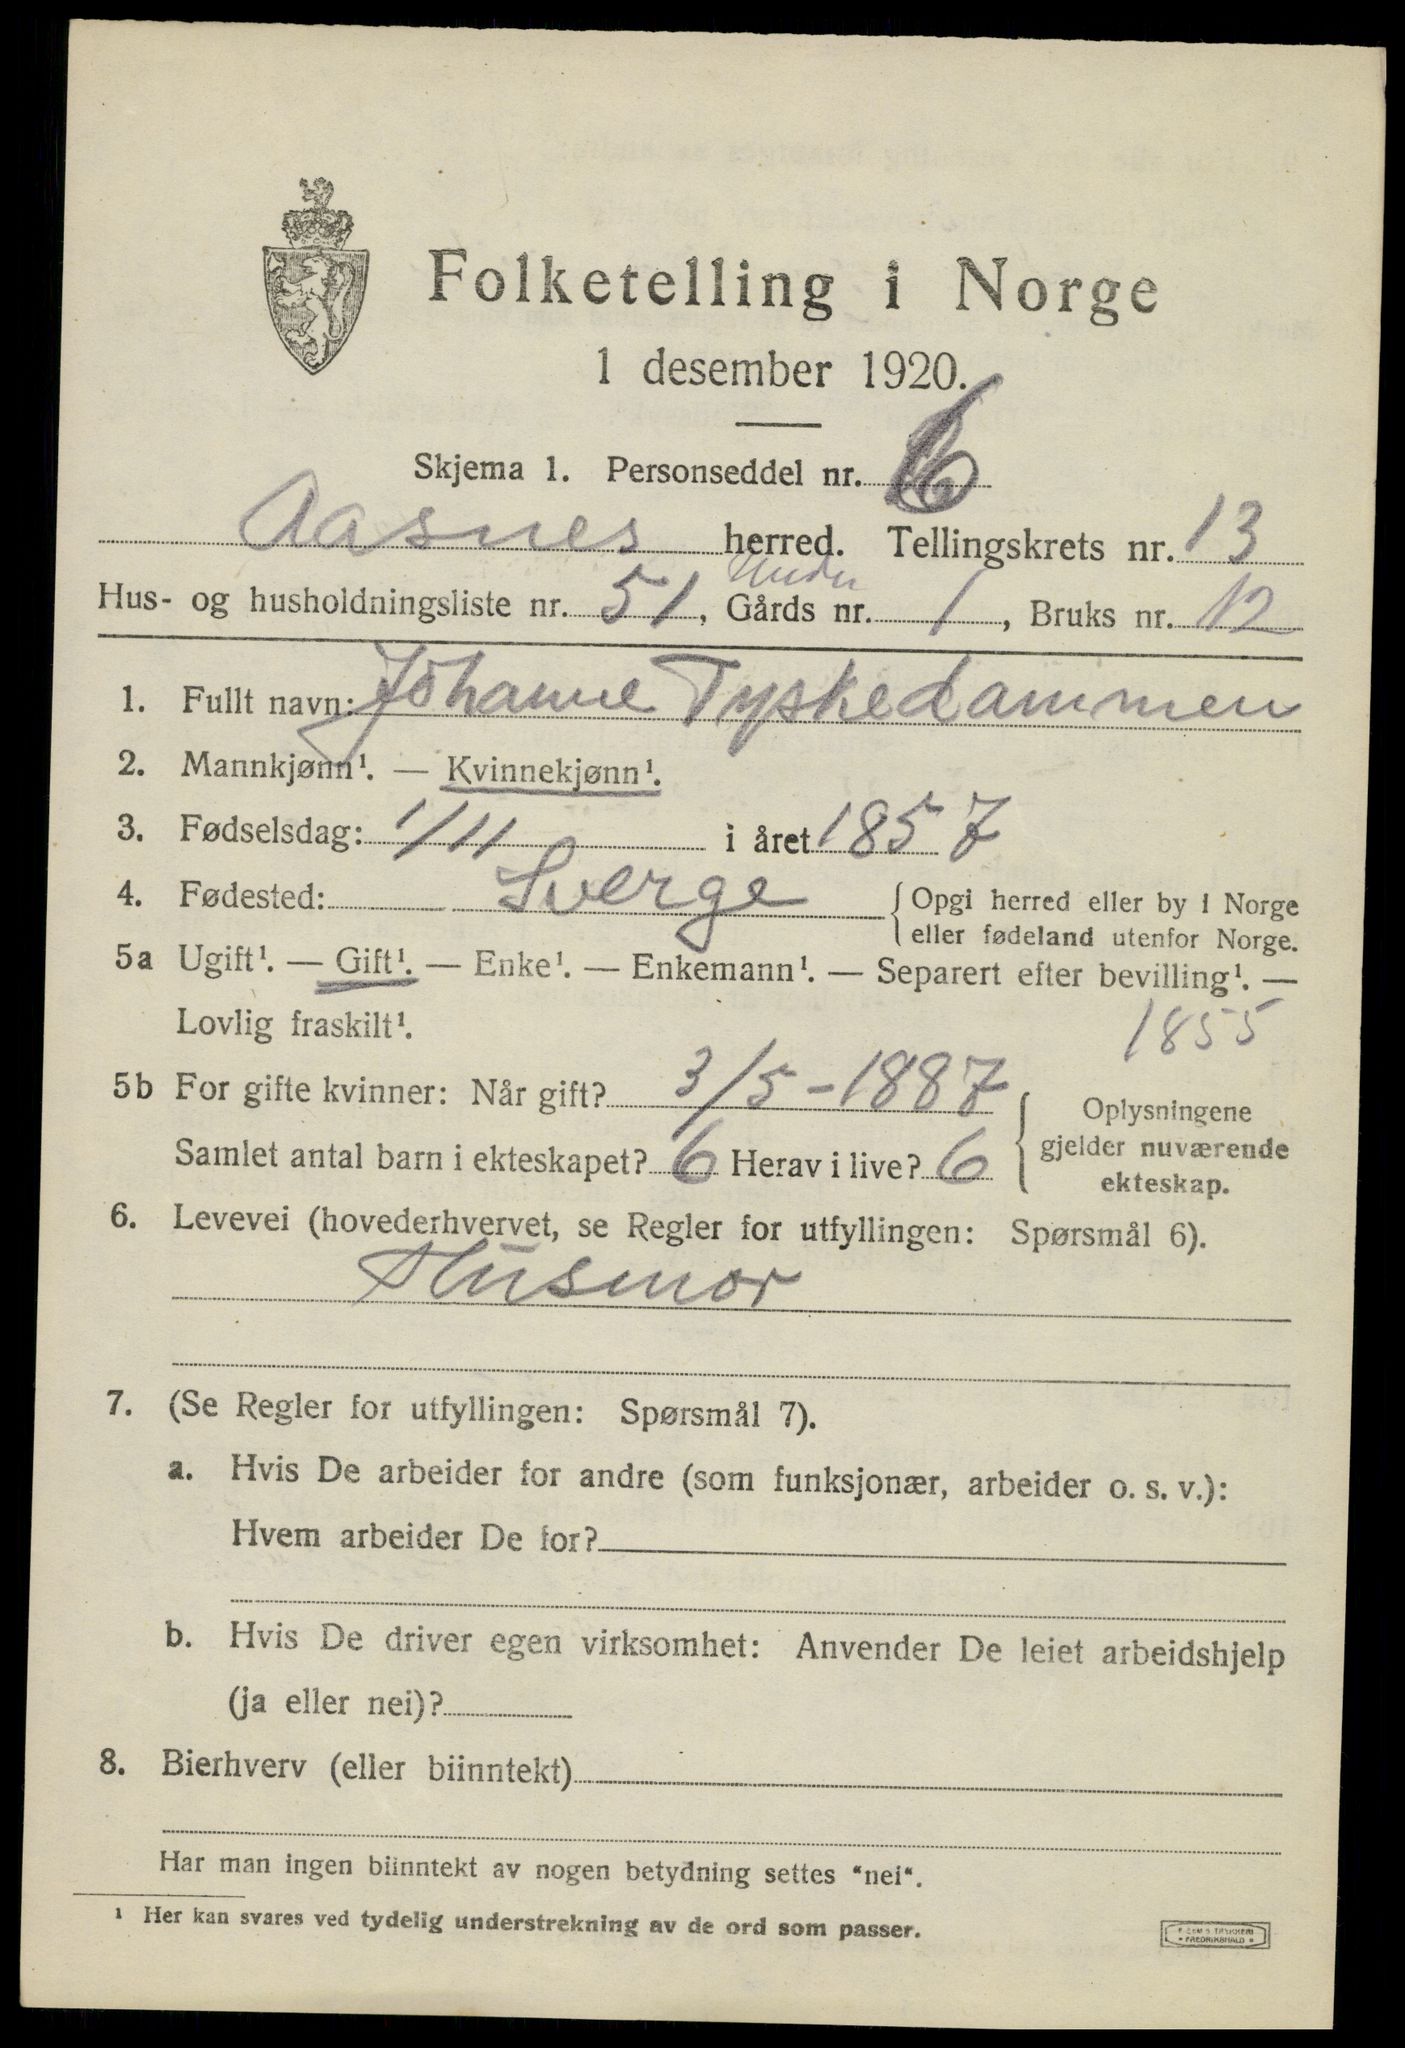 Folketelling i Norge
1 desember 1920.
Skjema 1. Personseddel nr. 6
Aasnes herred. Tellingskrets nr. 13
Under
Hus- og husholdningsliste nr. 51, Gårds nr. 1, Bruks nr. 12
1. Fullt navn: Johanne Tyskedammen
2. Mannkjønn¹. — Kvinnekjønn¹.
3. Fødselsdag: 1/11 i året 1857
4. Fødested: Sverge { Opgi herred eller by i Norge
eller fødeland utenfor Norge.
5a Ugift¹. — Gift¹. — Enke¹. — Enkemann¹. — Separert efter bevilling¹. —
Lovlig fraskilt¹. 1855
5b For gifte kvinner: Når gift? 3/5-1887 { Oplysningene
Samlet antal barn i ekteskapet? 6 Herav i live? 6 gjelder nuværende
ekteskap.
6. Levevei (hovederhvervet, se Regler for utfyllingen: Spørsmål 6).
Husmor
7. (Se Regler for utfyllingen: Spørsmål 7).
a. Hvis De arbeider for andre (som funksjonær, arbeider o. s. v.):
Hvem arbeider De for?
b. Hvis De driver egen virksomhet: Anvender De leiet arbeidshjelp
(ja eller nei)?
8. Bierhverv (eller biinntekt)
Har man ingen biinntekt av nogen betydning settes "nei".
¹ Her kan svares ved tydelig understrekning av de ord som passer.
FREDRIKSHALD